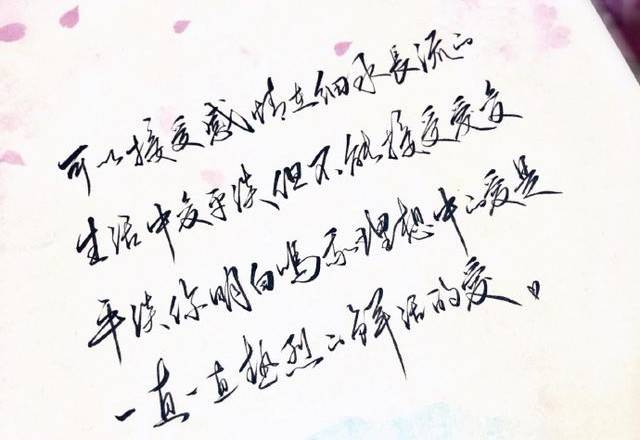 可以接受感情在细水長流的
生活中变平淡,但不能接受爱变
平淡,你明白吗?我理想中的爱是
一直一直热烈的鲜活的爱。